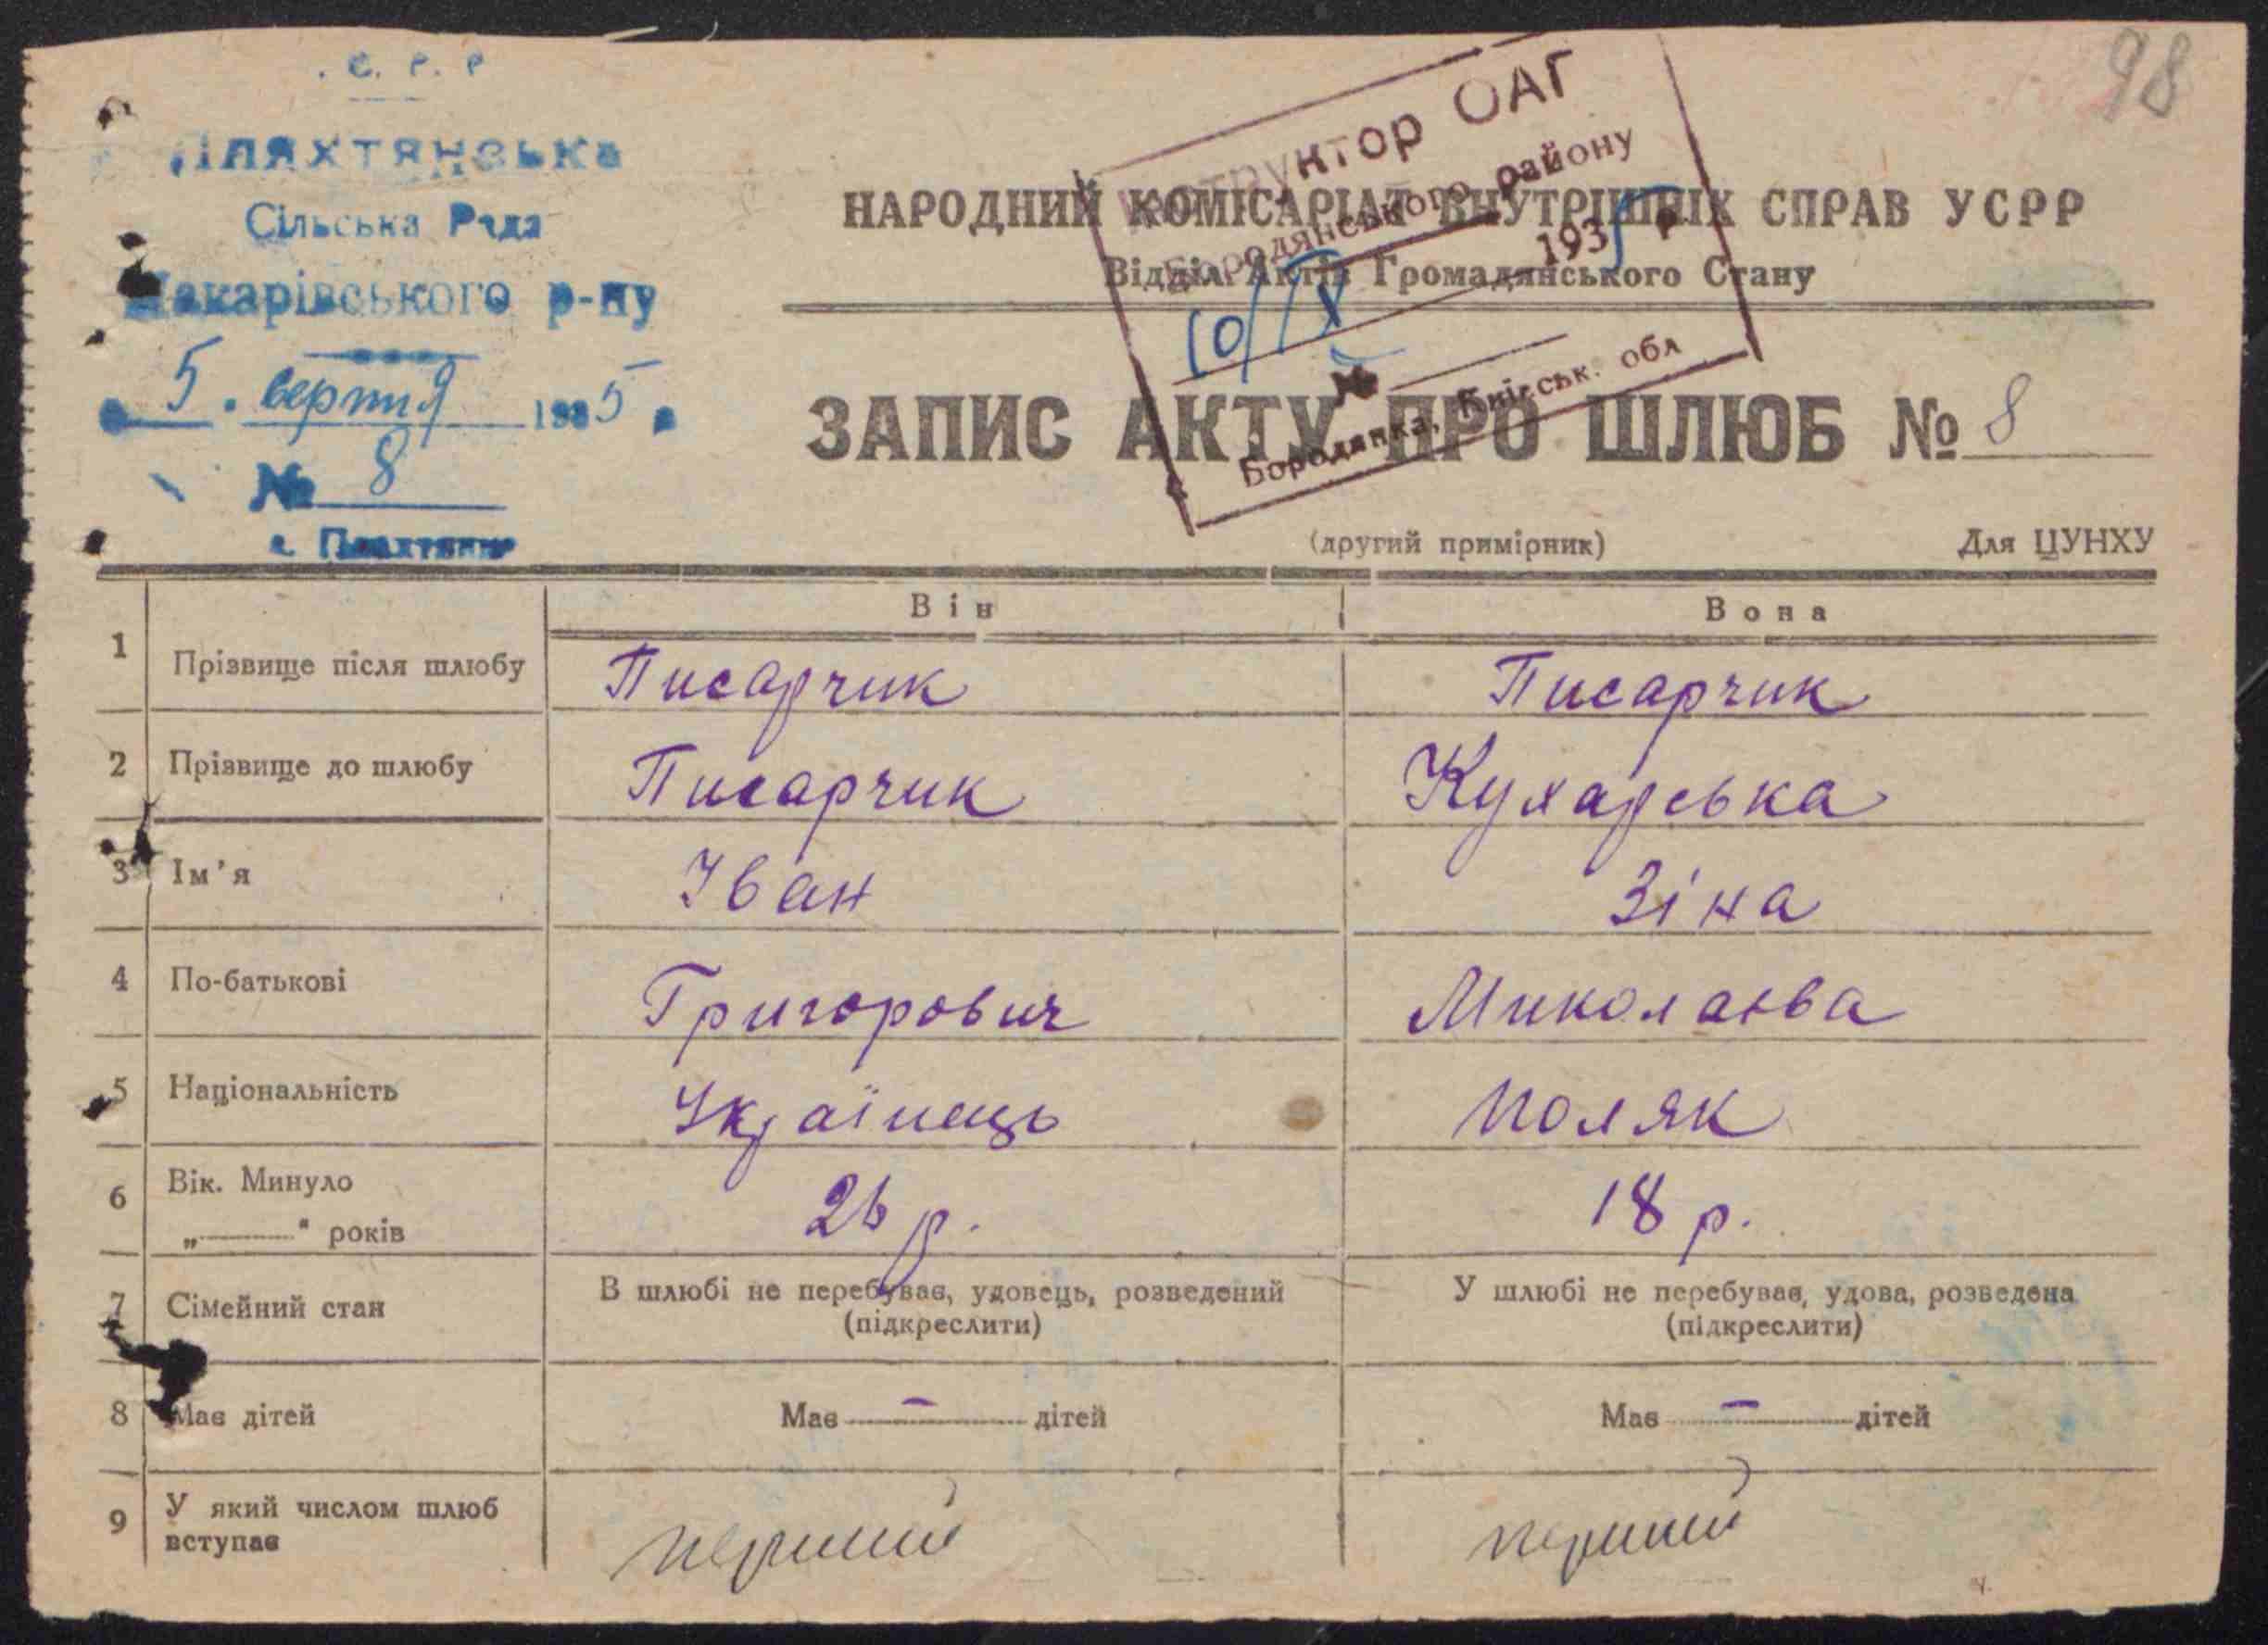 98
. С. Р. Р
Шляхтянська
Сільська Рада
Макарівського р-ну
5. верпня 1935
№ 8
Інструктор ОАГ
Бородянського району
10/IX 1935 р
№
Бородянка, Київськ. обл
НАРОДНИЙ КОМІСАРІАТ ВНУТРІШНІХ СПРАВ УСРР
Відділ Актів Громадянського Стану
ЗАПИС АКТУ ПРО ШЛЮБ № 8
(другий примірник) Для ЦУНХУ
Він Вона
1 Прізвище після шлюбу Писарчик Писарчик
2 Прізвище до шлюбу Писарчик Кухарська
3 Ім'я Іван Зіна
4 По-батькові Григорович Миколаєва
5 Національність Українець поляк
6 Вік. Минуло 26 р. 18 р.
„———" років
7 Сімейний стан В шлюбі не перебуває, удовець, розведений У шлюбі не перебуває, удова, розведена
(підкреслити) (підкреслити)
8 Має дітей Має — дітей Має — дітей
9 У який числом шлюб вступає перший перший